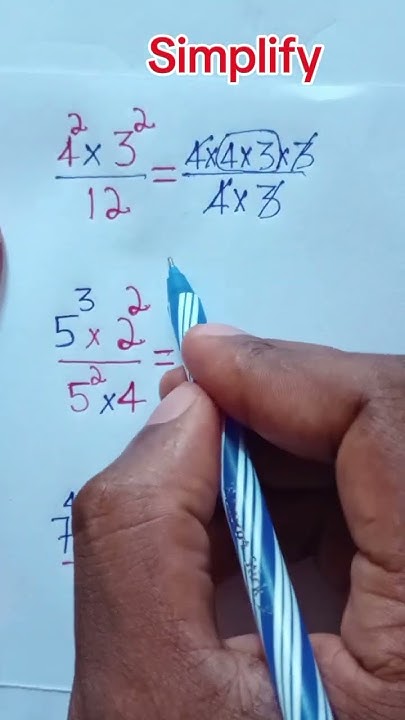 Simplify
4² × 3² / 12 = 4×4×3×3 / 4×3
5³ × 2² / 5² × 4 =
7⁴